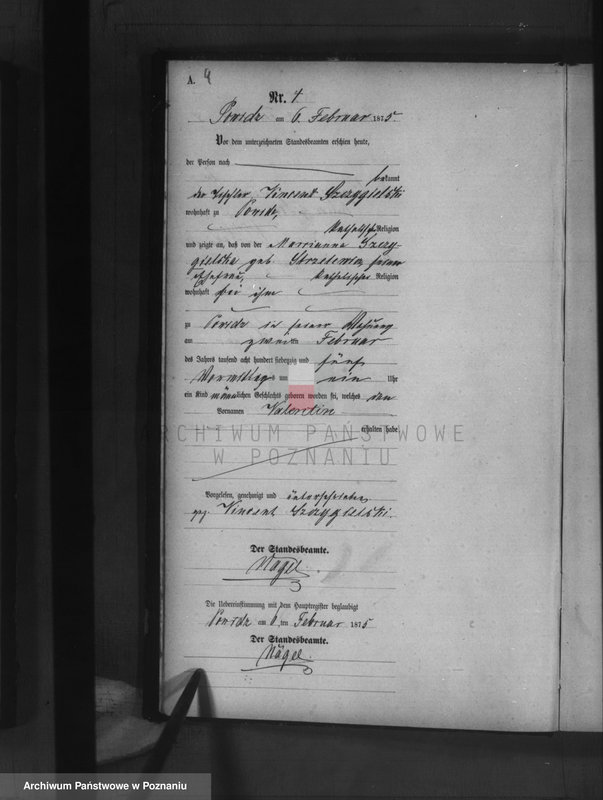 A. 4
Nr. 4
Powidz am 6. Februar 1875.
Vor dem unterzeichneten Standesbeamten erschien heute,
der Person nach
bekannt
der Tischler, Vincent
wohnhaft zu Powidz,
katholischer Religion
und zeigte an, daß von der Marianna
geb. seiner
Ehefrau, katholischer Religion
wohnhaft bei ihm
zu Powidz in seiner Wohnung
am zweiten Februar
des Jahrs tausend acht hundert siebenzig und fünf
Vormittags um ein Uhr
ein Kind männlichen Geschlechts geboren worden sei, welches den
Vornamen Valentin
erhalten habe
ARCHIWUM PAŃSTWOWE
W POZNANIU
Vorgelesen, genehmigt und unterschrieben
gez. Vincent
Der Standesbeamte.
Nägel.
Die Uebereinstimmung mit dem Hauptregister beglaubigt
Powidz am 6 ten Februar 1875
Der Standesbeamte.
Nägel.
Archiwum Państwowe w Poznaniu